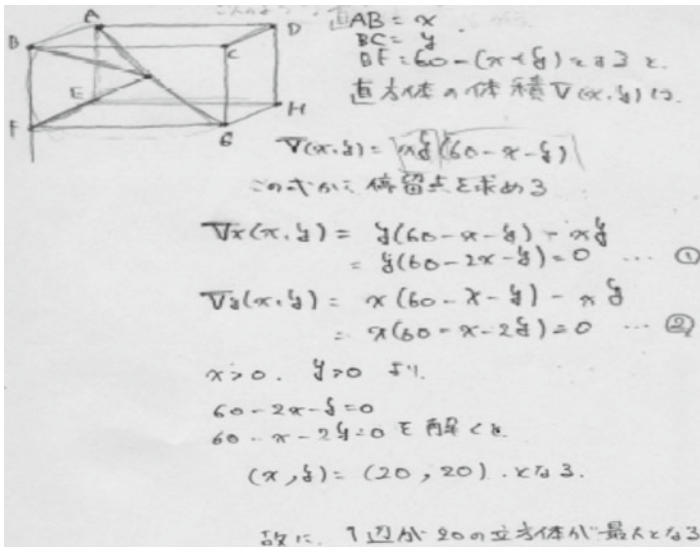 A
D
B
C
E
H
F
G
AB = x
BC = y
BF = 60-(x+y)とすると
直方体の体積V(x,y)は
V(x,y) = xy(60-x-y)
この式から停留点を求める
Vx(x,y) = y(60-x-y) - xy
= y(60-2x-y)=0 … ①
Vy(x,y) = x(60-x-y) - xy
= x(60-x-2y)=0 … ②
x>0. y>0 より.
60-2x-y=0
60-x-2y=0 を解くと
(x,y) = (20,20). となる.
故に. 1辺が20の立方体が最大となる